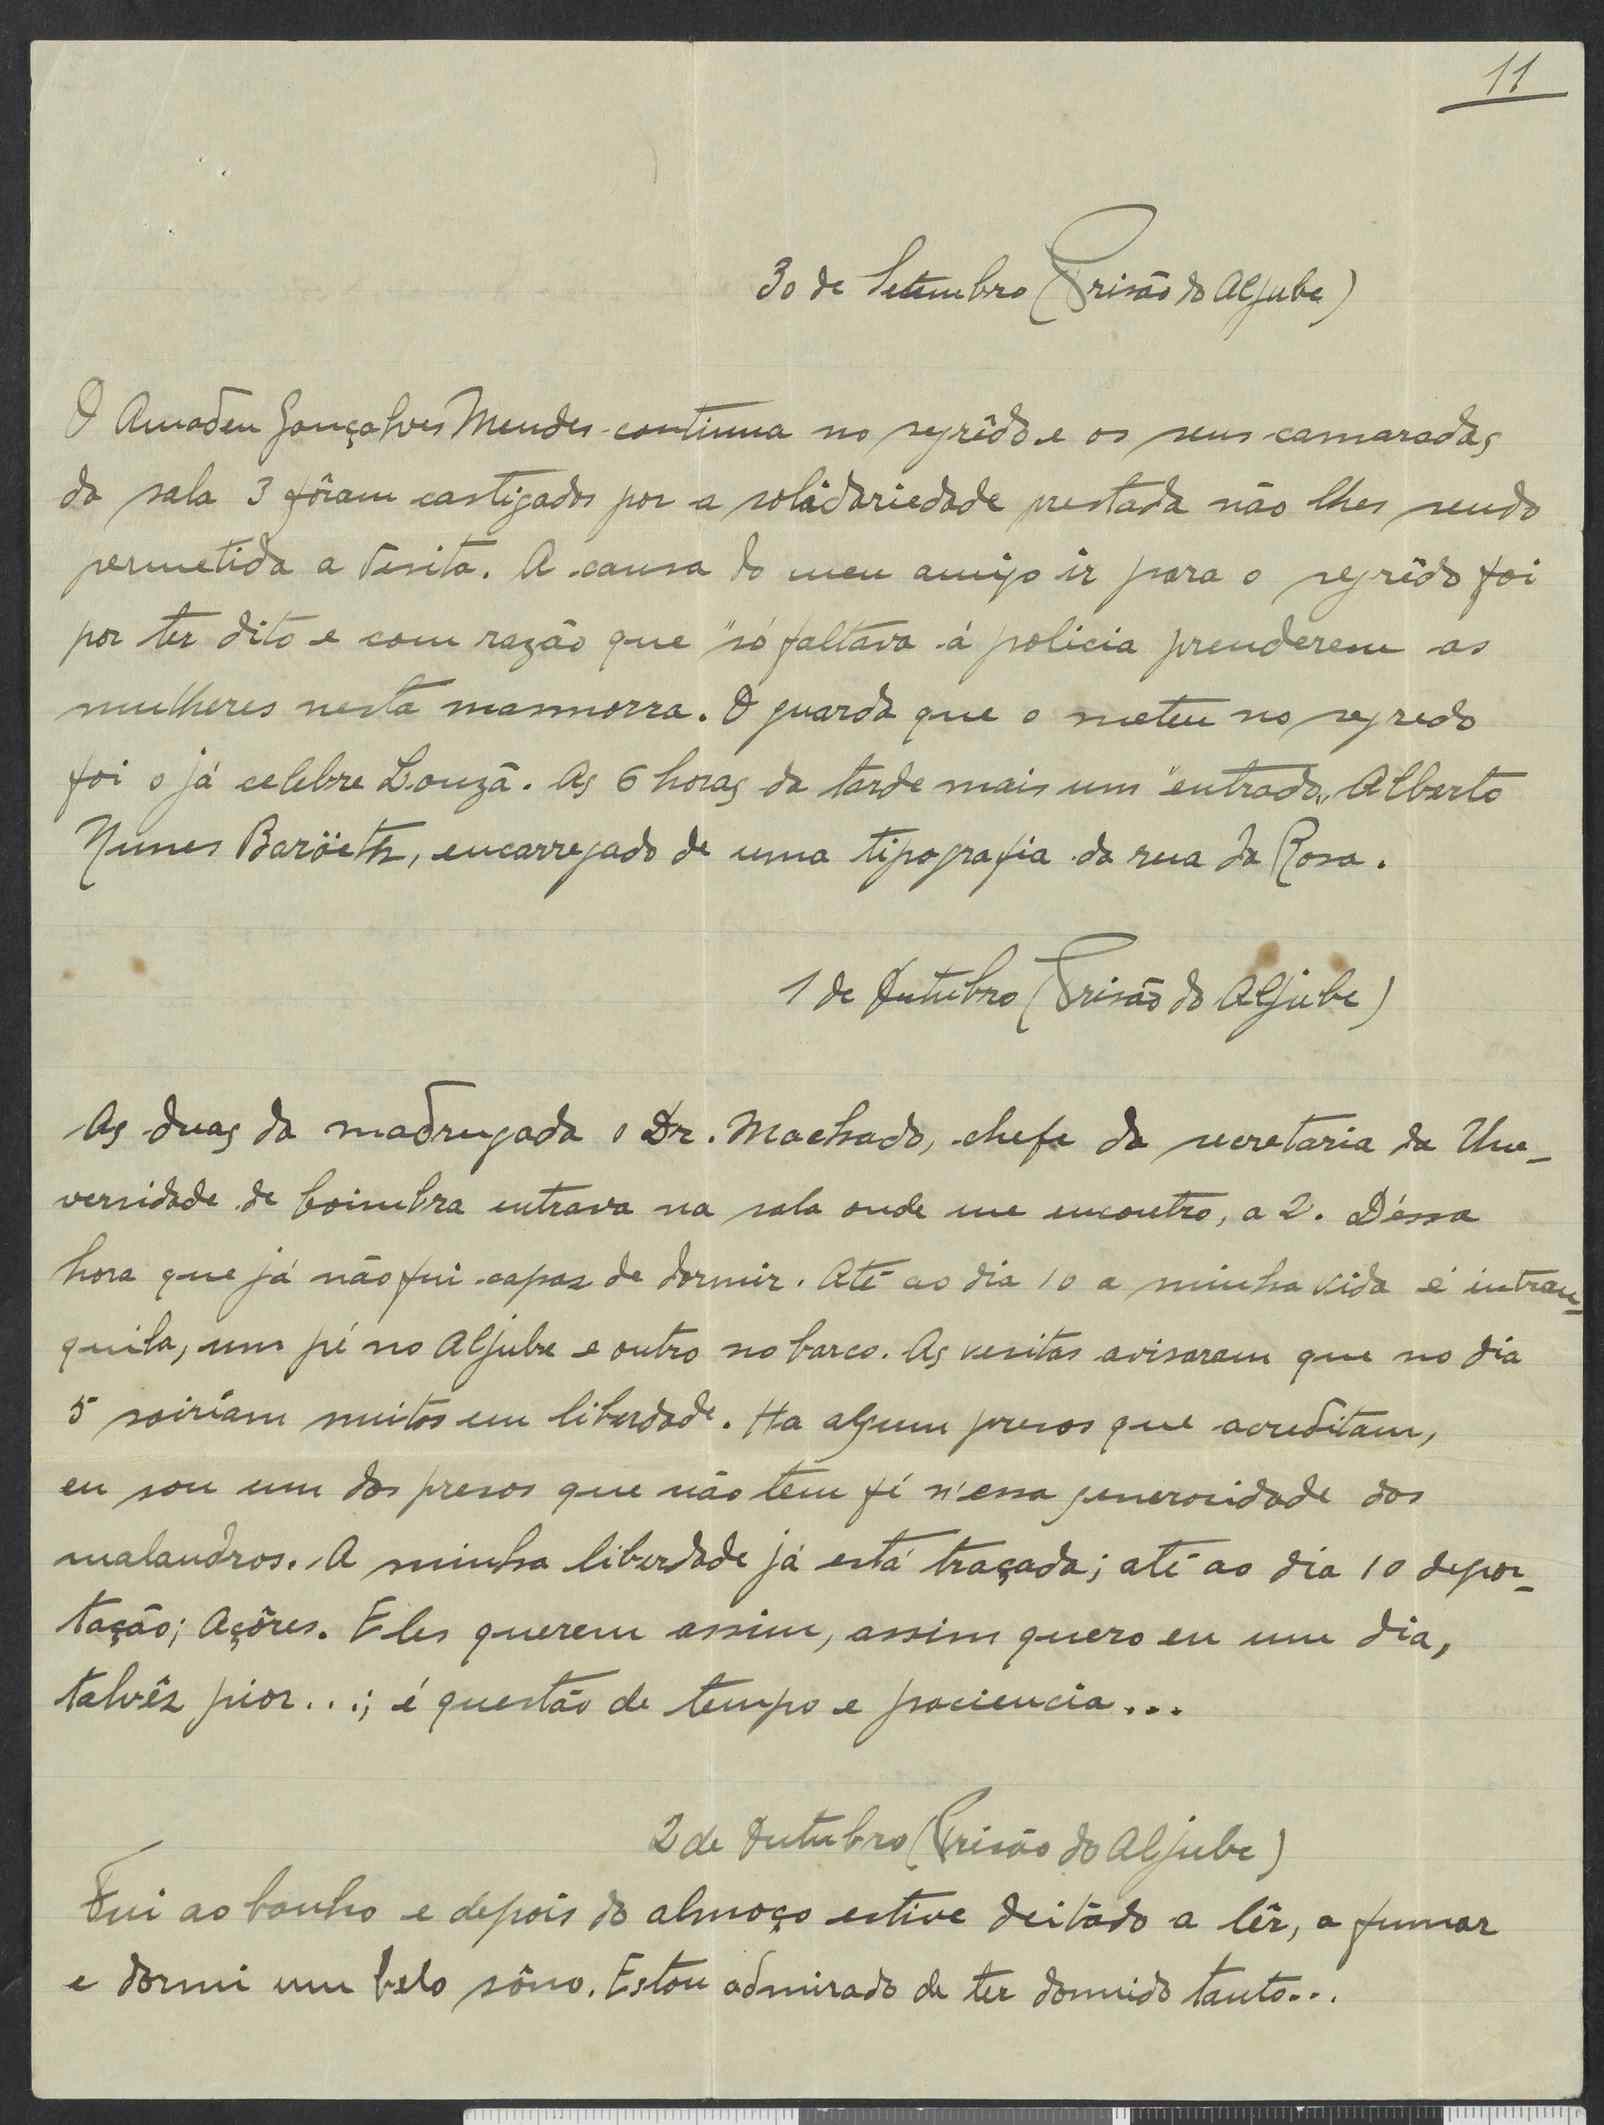 11
30 de Setembro (Prisão do Aljube)
O Amadeu Gonçalves Mendes continua no segrêdo e os seus camaradas
da sala 3 fôram castigados por a solidariedade prestada não lhes sendo
permetida a vesita. A causa do meu amigo ir para o segrêdo foi
por ter dito e com razão que "só faltava á policia prenderem as
mulheres nesta masmorra. O guarda que o meteu no segredo
foi o já celebre Louzã. As 6 horas da tarde mais um "entrado„ Alberto
Nunes Baröeth, encarregado de uma tipografia da rua da Rosa.
1 de Outubro (Prisão do Aljube)
As duas da madrugada o Dr. Machado, chefe da secretaria da Une-
versidade de Coimbra entrava na sala onde me encontro, a 2. Déssa
hora que já não fui capaz de dormir. Até ao dia 10 a minha vida é intran-
quila, um pé no Aljube e outro no barco. As vesitas avisaram que no dia
5 sairiam muitos em liberdade. Ha algum presos que acreditam,
eu sou um dos presos que não tem fé n'essa generosidade dos
malandros. A minha liberdade já está traçada; até ao dia 10 depor-
tação; Açôres. Eles querem assim, assim quero eu um dia,
talvêz pior...; é questão de tempo e paciencia...
2 de Outubro (Prisão do Aljube)
Fui ao banho e depois do almoço estive deitado a lêr, a fumar
e dormi um belo sôno. Estou admirado de ter domido tanto...